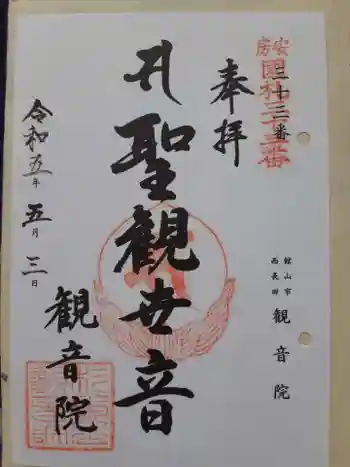 安房
国札三十三番
三十三番
奉拝
館山市
西長田
観音院
聖観世音
令和五年五月三日
観音院